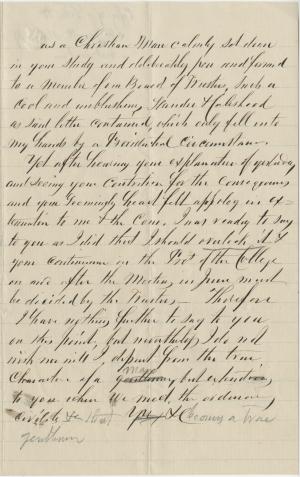 as a Christian Man calmly set down
in your study and deliberately pen and send
to a Member of our Board of Trustees, such a
cool and unblushing slander & falsehood
as said letter contained, which only fell into
my hands by a Providential circumstance.
Yet after hearing your explanation of yesterday
and seeing your contrition for the consequences
and your seemingly heart felt apology in
to me & the Com. I was ready to say
to you as I did that I should overlook it &
your continuance as the Prof of the College
on and after the Meeting in June must
be decided by the Trustees — Therefore
I have nothing further to say to you
on this point, but most I do not
wish nor will I, depart from the true
character of a man gentleman, but extend
to you when we meet, the ordinary
civilities that becomes a true
gentleman